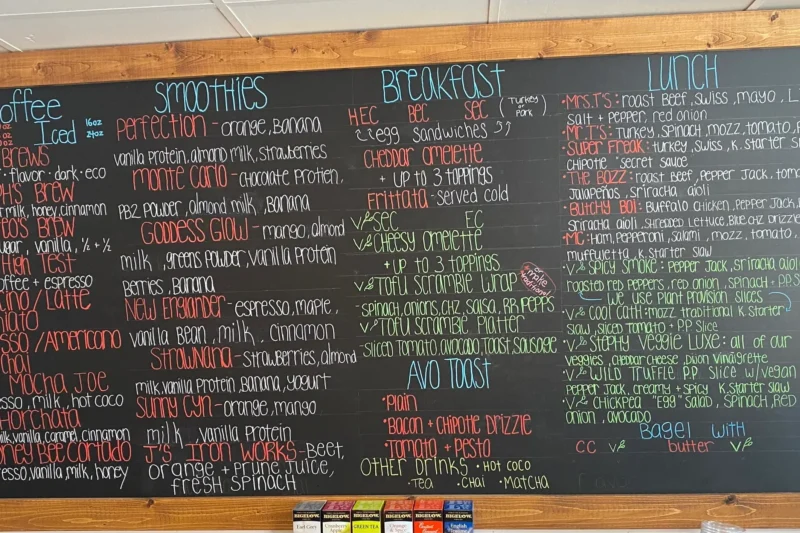 offee
Iced
16oz
24oz
BREWS
· flavor · dark · eco
BREW
milk, honey, cinnamon
BREW
vanilla, ½ + ½
High Test
offee + espresso
/Latte
/Americano
Mocha Joe
milk, hot coco
Horchata
milk, vanilla, caramel, cinnamon
Honey Bee Cortado
vanilla, milk, honey
SMOOTHIES
PERFECTION - orange, Banana
vanilla protein, almond milk, strawberries
MONTE CARLO - chocolate Protien,
PB2 POWDER, almond milk, Banana
GODDESS GLOW - mango, almond
milk, greens powder, vanilla Protein
Berries, Banana
NEW ENGLANDER - espresso, maple,
vanilla Bean, milk, cinnamon
STRAWNANA - strawberries, almond
milk, vanilla Protein, Banana, yogurt
SUNNY CYN - orange, mango
milk, vanilla Protein
J's IRON WORKS - Beet,
orange + Prune Juice,
fresh spinach
BREAKFAST
HEC BEC SEC (Turkey or Pork)
egg sandwiches
CHEDDAR OMELETTE
+ up to 3 toppings
Frittata - served cold
SEC EC
CHEESY OMELETTE
+ UP TO 3 TOPPINGS
TOFU SCRAMBLE WRAP
or make traditional
spinach, onions, chz, salsa, R.R. PEPPS
TOFU SCRAMBLE PLATTER
-sliced tomato, avocado, toast, sausage
AVO TOAST
· Plain
· Bacon + Chipotle Drizzle
· Tomato + Pesto
OTHER DRINKS · HOT COCO
· TEA · CHAI · MATCHA
LUNCH
· MRS.T'S: roast Beef, swiss, mayo, L
salt + pepper, red onion
· MR.T'S: Turkey, spinach, mozz, tomato,
· SUPER FREAK: turkey, swiss, K. starter
chipotle "secret sauce
· THE BOZZ: roast Beef, Pepper Jack,
Jalapeños, sriracha aioli
· BUTCHY BOI: Buffalo chicken, Pepper Jack,
sriracha aioli, shredded lettuce, Blue chz drizzle
· MC: Ham, Pepperoni, salami, mozz, tomato,
muffuletta, K. starter slaw
SPICY SMOKE: PEPPER JACK, sriracha aioli
roasted red peppers, red onion, spinach + P.P.
we use plant provision slices
COOL CATH: mozz traditional K. starter
slaw, sliced tomato + P.P slice
STEPHY VEGGIE LUXE: all of our
veggies, cheddar cheese, Dijon vinaigrette
WILD TRUFFLE P.P SLICE w/vegan
pepper jack, creamy + spicy K. starter slaw
CHICKPEA "EGG" SALAD, SPINACH, RED
onion, avocado
Bagel with
CC butter
BIGELOW BIGELOW BIGELOW BIGELOW BIGELOW BIGELOW
Earl Grey GREEN TEA